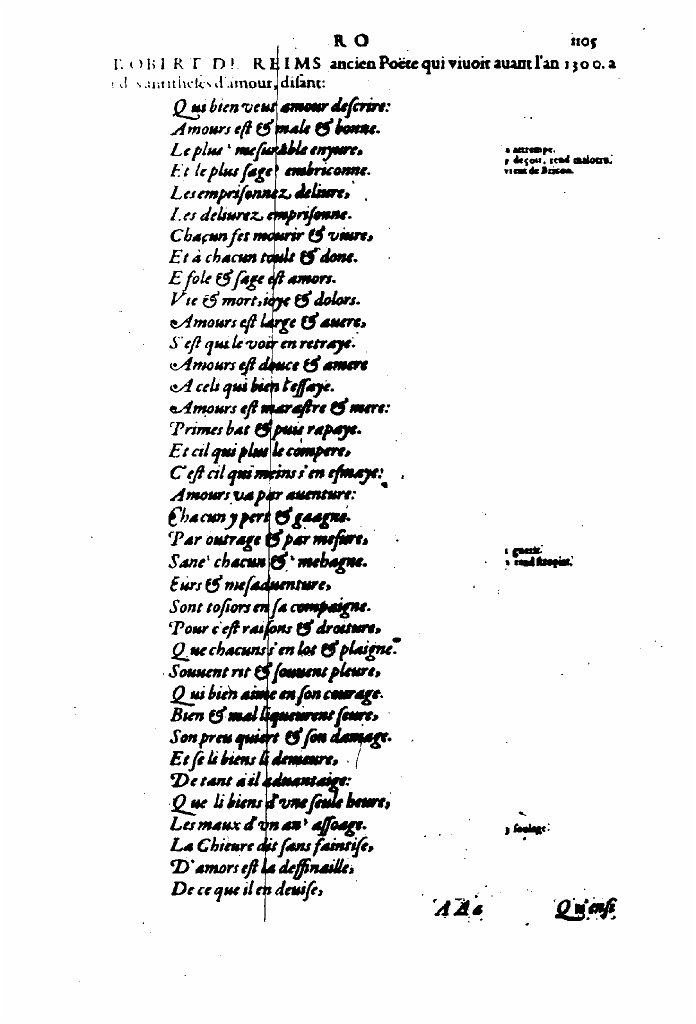 R O 1105
ROBERT DE REIMS ancien Poëte qui viuoit auant l'an 1300. a
antitheses d'amour, disant:
Qui bien veut amour descrire:
Amours est & male & bonne.
Le plus ˢ mesurable enyure,
Et le plus sage embriconne.
Les emprisonnez deliure,
Les deliurez emprisonne.
Chacun fet mourir & viure,
Et à chacun toule & done.
E fole & sage est amors.
Vie & mort, ioye & dolors.
Amours est large & auere,
S'est qui le voir en retraye.
Amours est douce & amere
A cels qui bien l'essaye.
Amours est marastre & mere:
Primes bat & puis rapaye.
Et cil qui plus le compere,
C'est cil qui meins s'en esmaye:
Amours va par auenture:
Chacun y pert & gaagne.
Par outrage & par mesure,
Sane¹ chacun & ² mehagne.
Eurs & mesaduenture,
Sont tosiors en sa compaigne.
Pour c'est raisons & droiture,
Que chacuns s'en lot & plaigne.
Souuent rit & souuent pleure,
Qui bien aime en son courage.
Bien & mal li queurent seure,
Son preu quiert & son damage.
Et se li biens li demeure,
De tant a il aduantaige:
Que li biens d'vne seule heure,
Les maux d'vn an ³ assoage.
La Chieure dit sans faintise,
D'amors est la deffinaille,
De ce que il en deuise,
A A a Qu'ensi
attrempe.
deçoit, rend malotru.
vient de Bricon.
1 guerit.
2 rend estropiat.
3 soulage.